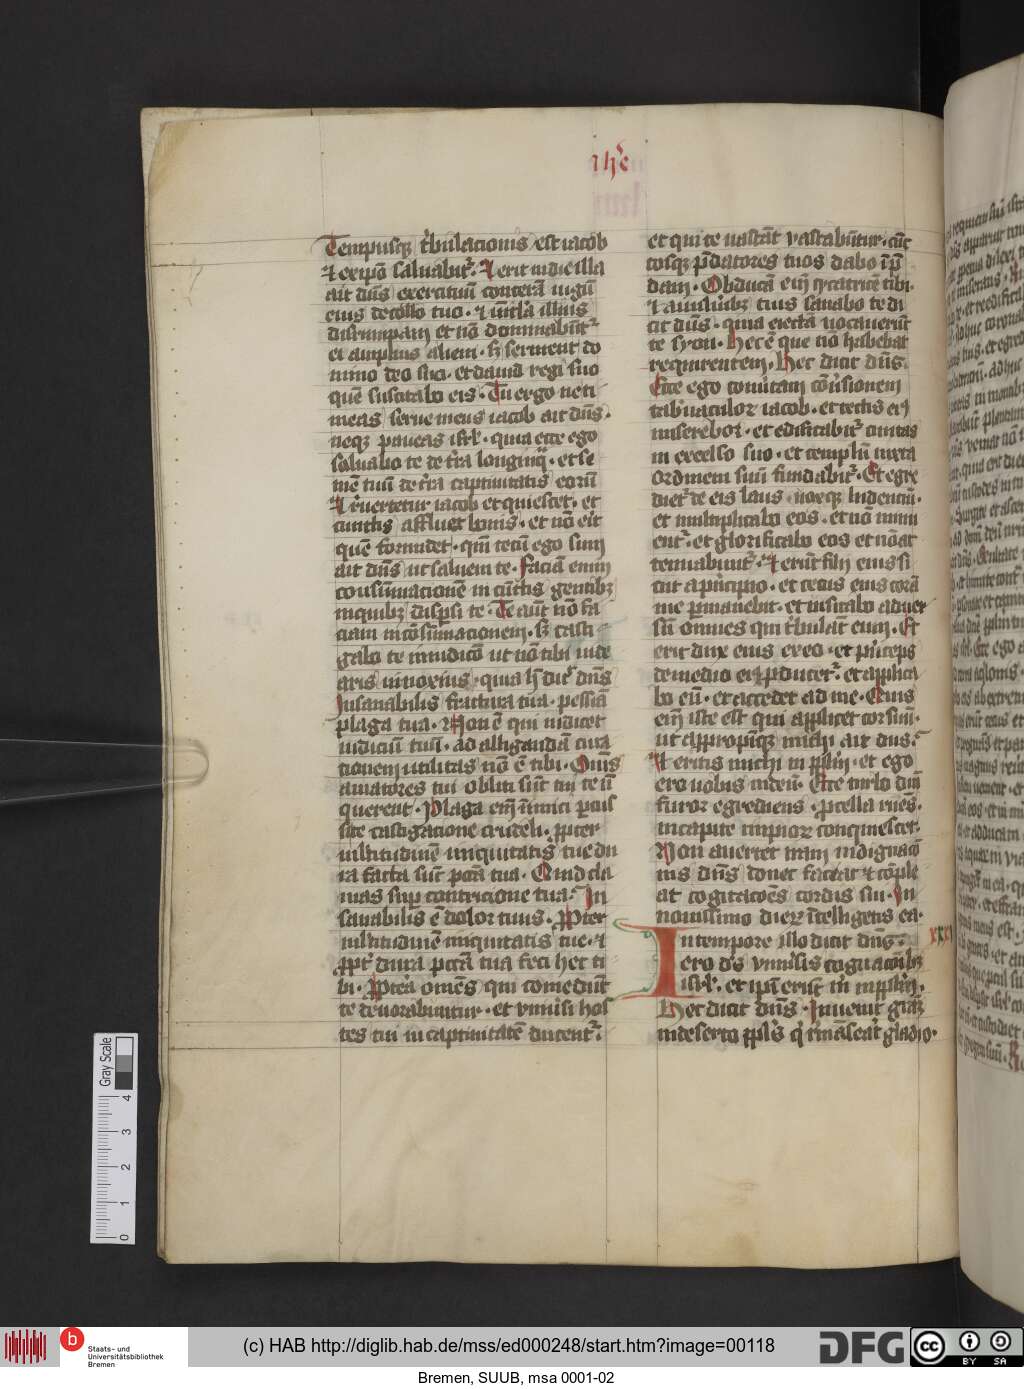 ihe
Tempusqꝫ tͥbulacionis est iacob
⁊ ex ipo saluabit᷑. ⁊ erit in die illa
ait dn̄s exercituū conterā iugū
eius de collo tuo. ⁊ uīcl̄a illius
disrumpam et nō dominabūt᷑
ei amplius alieni. sꝫ seruient do
mino deo suo. et dauid regi suo
quē suscitabo eis. Tu ergo ne ti
meas serue meus iacob ait dn̄s.
neqꝫ paueas isrl̄. quia ecce ego
saluabo te de tr̄a longinq̄. et se
mē tuū de tr̄a captiuitatis eorū
⁊ reuertetur iacob et quiescet. et
cunctis affluet bonis. et nō erit
quē formidet. qm̄ tecū ego sum
ait dn̄s ut saluem te. faciā enim
cōsummacionē in cūctis gentibꝫ
in quibꝫ dispersi te. Te aūt nō fa
ciam in cōsummacionem. sꝫ casti
gabo te in iudicō ut nō tibi uide
aris innoxius. quia h̄ dic̄ dn̄s
Insanabilis fractura tua. pessiā
plaga tua. Non ē qui iudicet
iudiciū tuū. ad alligandā cura
cionem utilitas nō ē tibi. Om̄s
amatores tui obliti sūt tui te n̄
querent. Plaga em̄ inimici ꝑcus
si te castigacione crudeli. ꝓpter
multitudinē iniquitatis tue du
ra facta sūt pctā tua. Quid cla
mas suꝑ contricione tua. In
sanabilis ē dolor tuus. Ꝓpter
multitudinē iniquitatis tue. ⁊
ꝓpt̄ dura pctā tua feci hec ti
bi. Ꝓpt̄ea om̄s qui comedūt
te deuorabuntur. et vniuͥsi hos
tes tui in captiuitatē ducent᷑.
et qui te uastāt vastabūtur. cūc
tosqꝫ p̄datores tuos dabo ī p̄
dam. Obducā em̄ cicatricē tibi.
⁊ a uulnͥibꝫ tuis sanabo te di
cit dn̄s. quia eiectā uocauerūt
te syon. Hec ē que nō habebat
requirentem. Hec dicit dn̄s.
Ecce ego cōuertam cōuͥsionem
tabͥnaculoꝝ iacob. et tectis eiꝰ
miserebor. et edificabit᷑ ciuitas
in excelso suo. et templū iuxta
ordinem suū fundabit᷑. Et egre
diet᷑ de eis laus. uoxqꝫ ludenciū.
et multiplicabo eos. et nō minu
ent᷑. et glorificabo eos et nō at
tenuabunt᷑. ⁊ erūt filii eius si
cut a pͥncipio. et cetus eius corā
me ꝑmanebit. et uisitabo aduer
sū omnes qui tͥbulāt eum. Et
erit dux eius ex eo. et pͥnceps
de medio eiꝰ ꝓducet᷑. et applica
bo eū. et accedet ad me. Quis
em̄ iste est qui applicet cor suū.
ut appropinqꝫ michi ait dn̄s.
⁊ eritis michi in ppl̄m. et ego
ero uobis in deū. Ecce turbo dn̄i
furor egrediens. ꝓcella ruēs.
in capite impioꝝ conquiescet.
Non auertet iram indignacō
nis dn̄s donec faciat ⁊ cōple
at cogitacōes cordis sui. In
nouissimo dieꝝ ītelligetis ea.
In tempore illo dicit dn̄s. xxxi
ero ds̄ vniuͥsis cognacōibꝫ
isrl̄. et ipī erūt m̄ in ppl̄m.
Hec dicit dn̄s. Inuenit grām
in deserto ppl̄s qͥ remāserāt gladio.
Gray Scale
0 1 2 3 4
b Staats- und
Universitätsbibliothek
Bremen
(c) HAB http://diglib.hab.de/mss/ed000248/start.htm?image=00118
DFG
cc BY SA
Bremen, SUUB, msa 0001-02